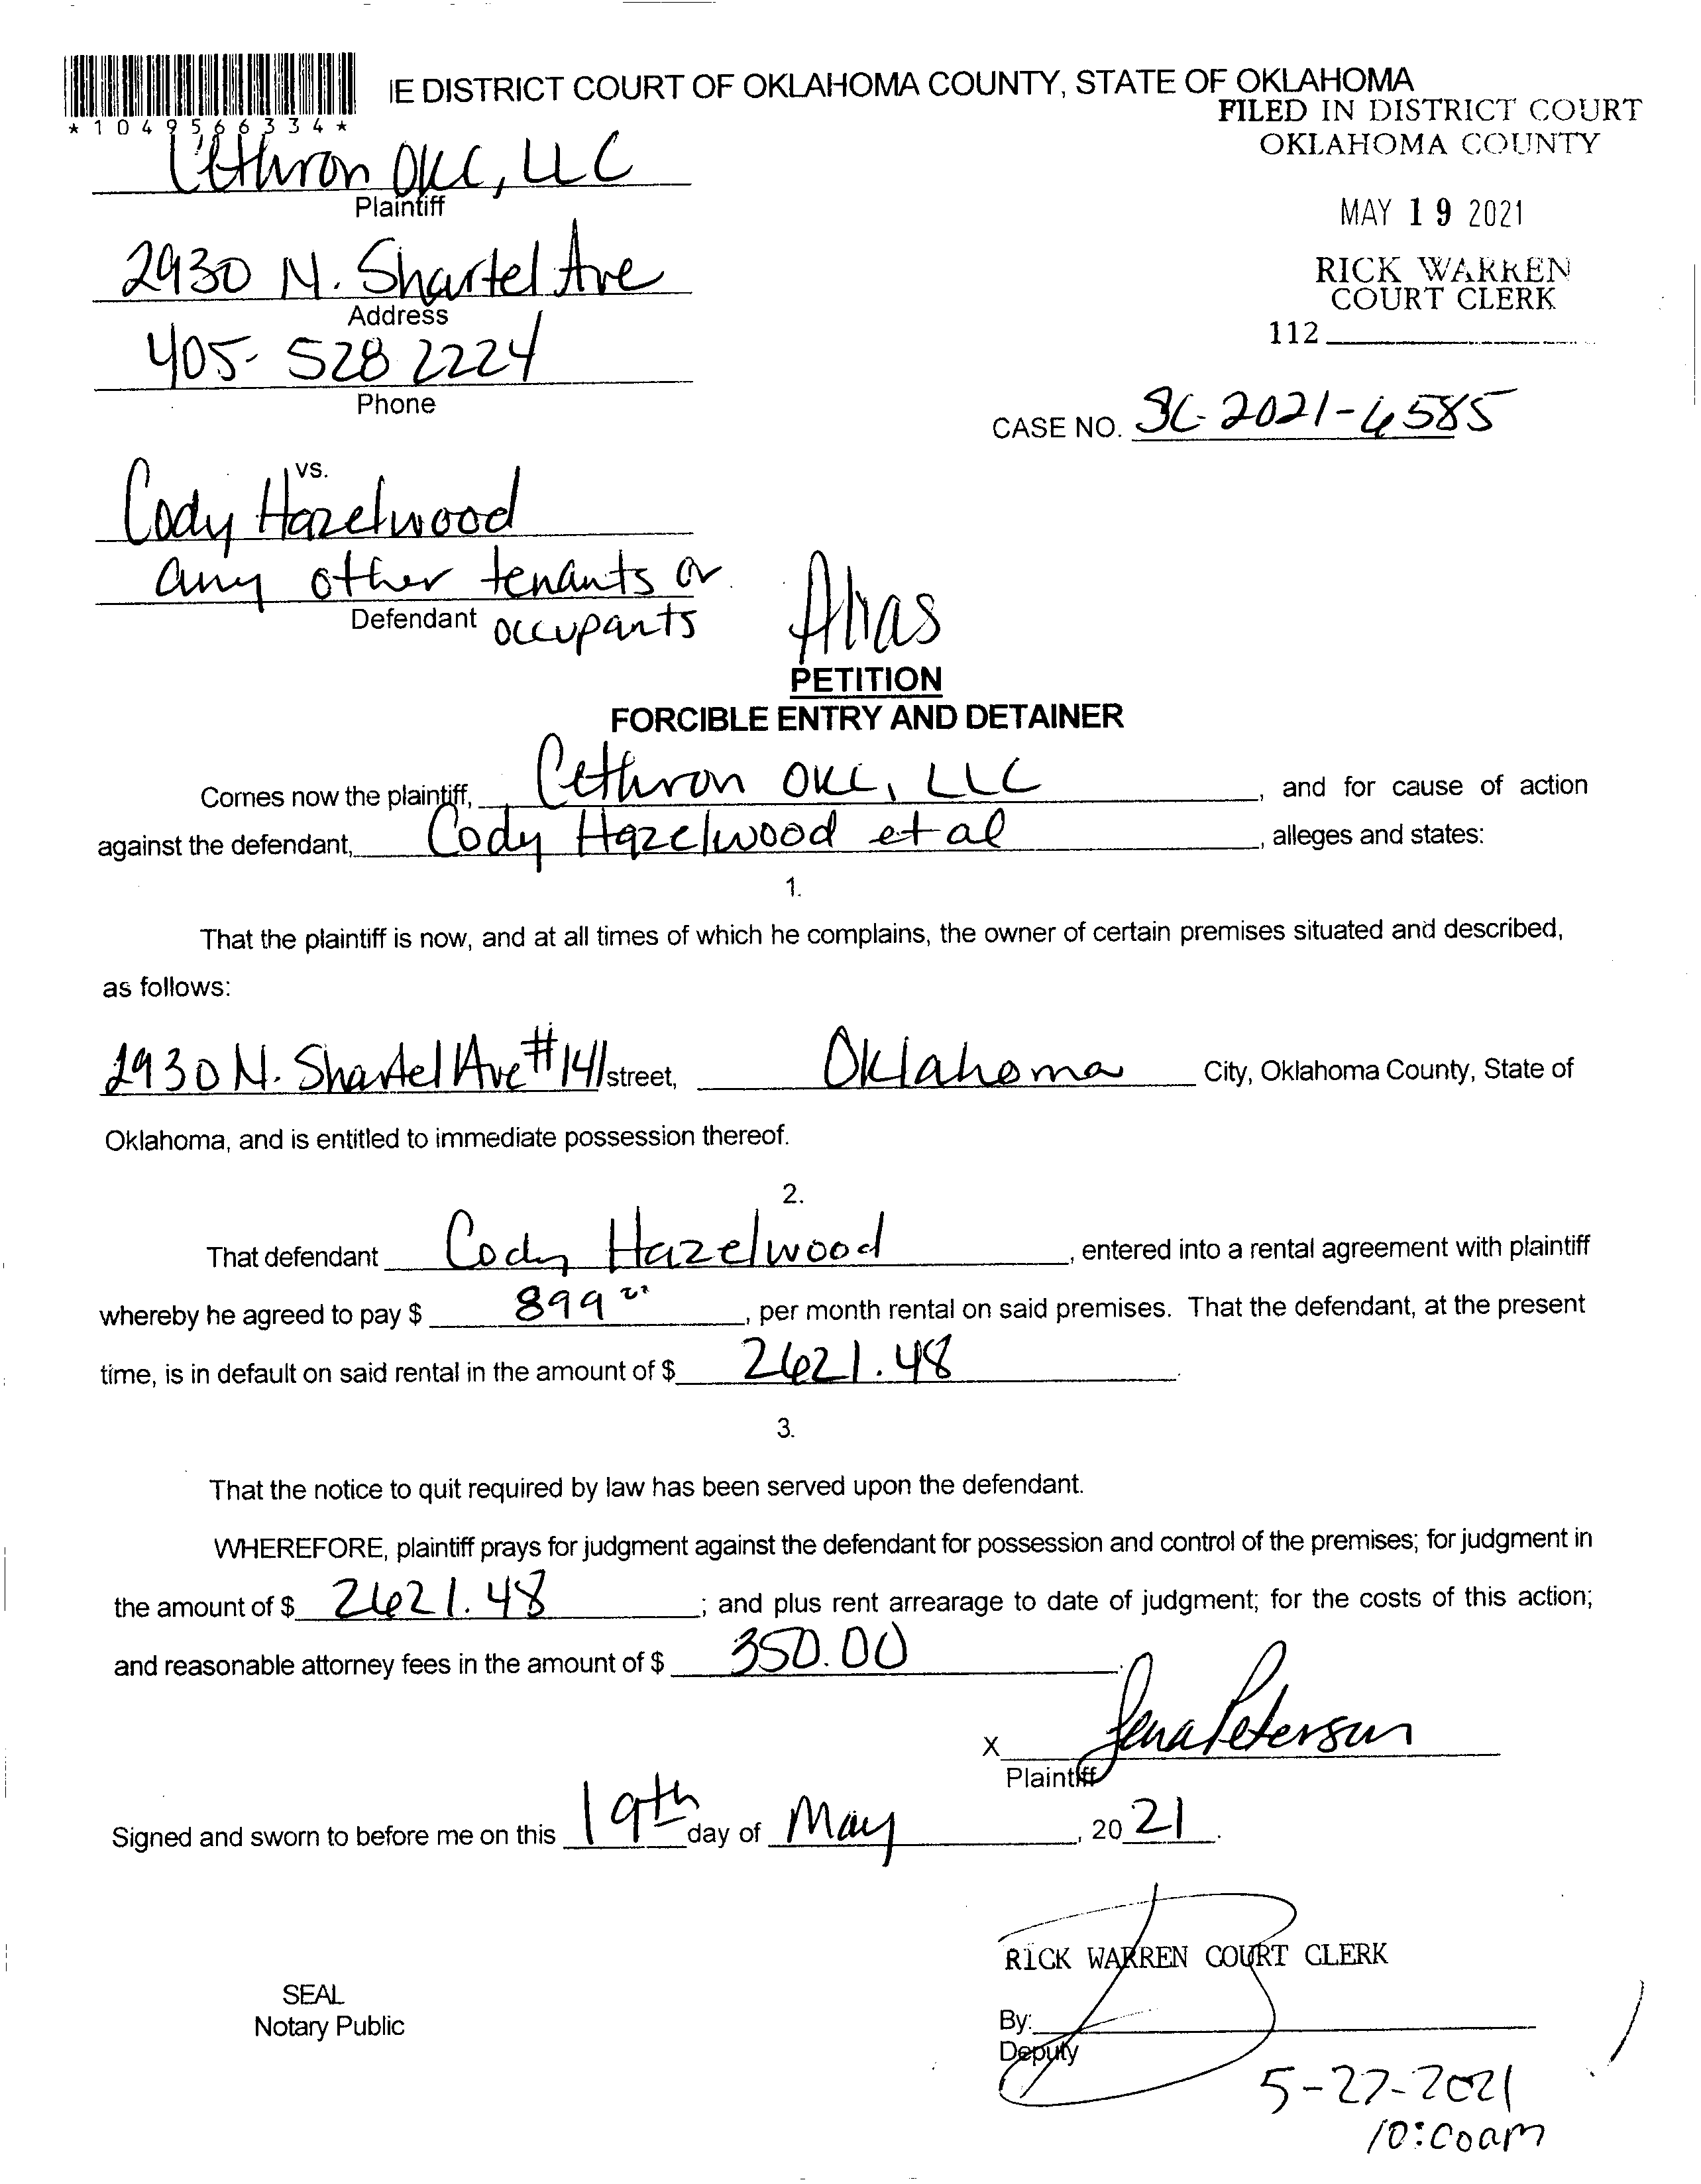 IE DISTRICT COURT OF OKLAHOMA COUNTY, STATE OF OKLAHOMA
*1049566334*
FILED IN DISTRICT COURT
OKLAHOMA COUNTY
MAY 19 2021
RICK WARREN
COURT CLERK
112
Cethron OKC, LLC
Plaintiff
2930 N. Shartel Ave
Address
405- 528 2224
Phone
CASE NO. SC-2021-6585
vs.
Cody Hazelwood
any other tenants or
Defendant occupants
Alias
PETITION
FORCIBLE ENTRY AND DETAINER
Comes now the plaintiff, Cethron OKC, LLC, and for cause of action
against the defendant, Cody Hazelwood et al, alleges and states:
1.
That the plaintiff is now, and at all times of which he complains, the owner of certain premises situated and described,
as follows:
2930 N. Shartel Ave #141 street, Oklahoma City, Oklahoma County, State of
Oklahoma, and is entitled to immediate possession thereof.
2.
That defendant Cody Hazelwood, entered into a rental agreement with plaintiff
whereby he agreed to pay $ 899, per month rental on said premises. That the defendant, at the present
time, is in default on said rental in the amount of $ 2621.48.
3.
That the notice to quit required by law has been served upon the defendant.
WHEREFORE, plaintiff prays for judgment against the defendant for possession and control of the premises; for judgment in
the amount of $ 2621.48; and plus rent arrearage to date of judgment; for the costs of this action;
and reasonable attorney fees in the amount of $ 350.00.
X Jena Peterson
Plaintiff
Signed and sworn to before me on this 19th day of May, 2021.
RICK WARREN COURT CLERK
SEAL
Notary Public
By:
Deputy
5-27-2021
10:00am